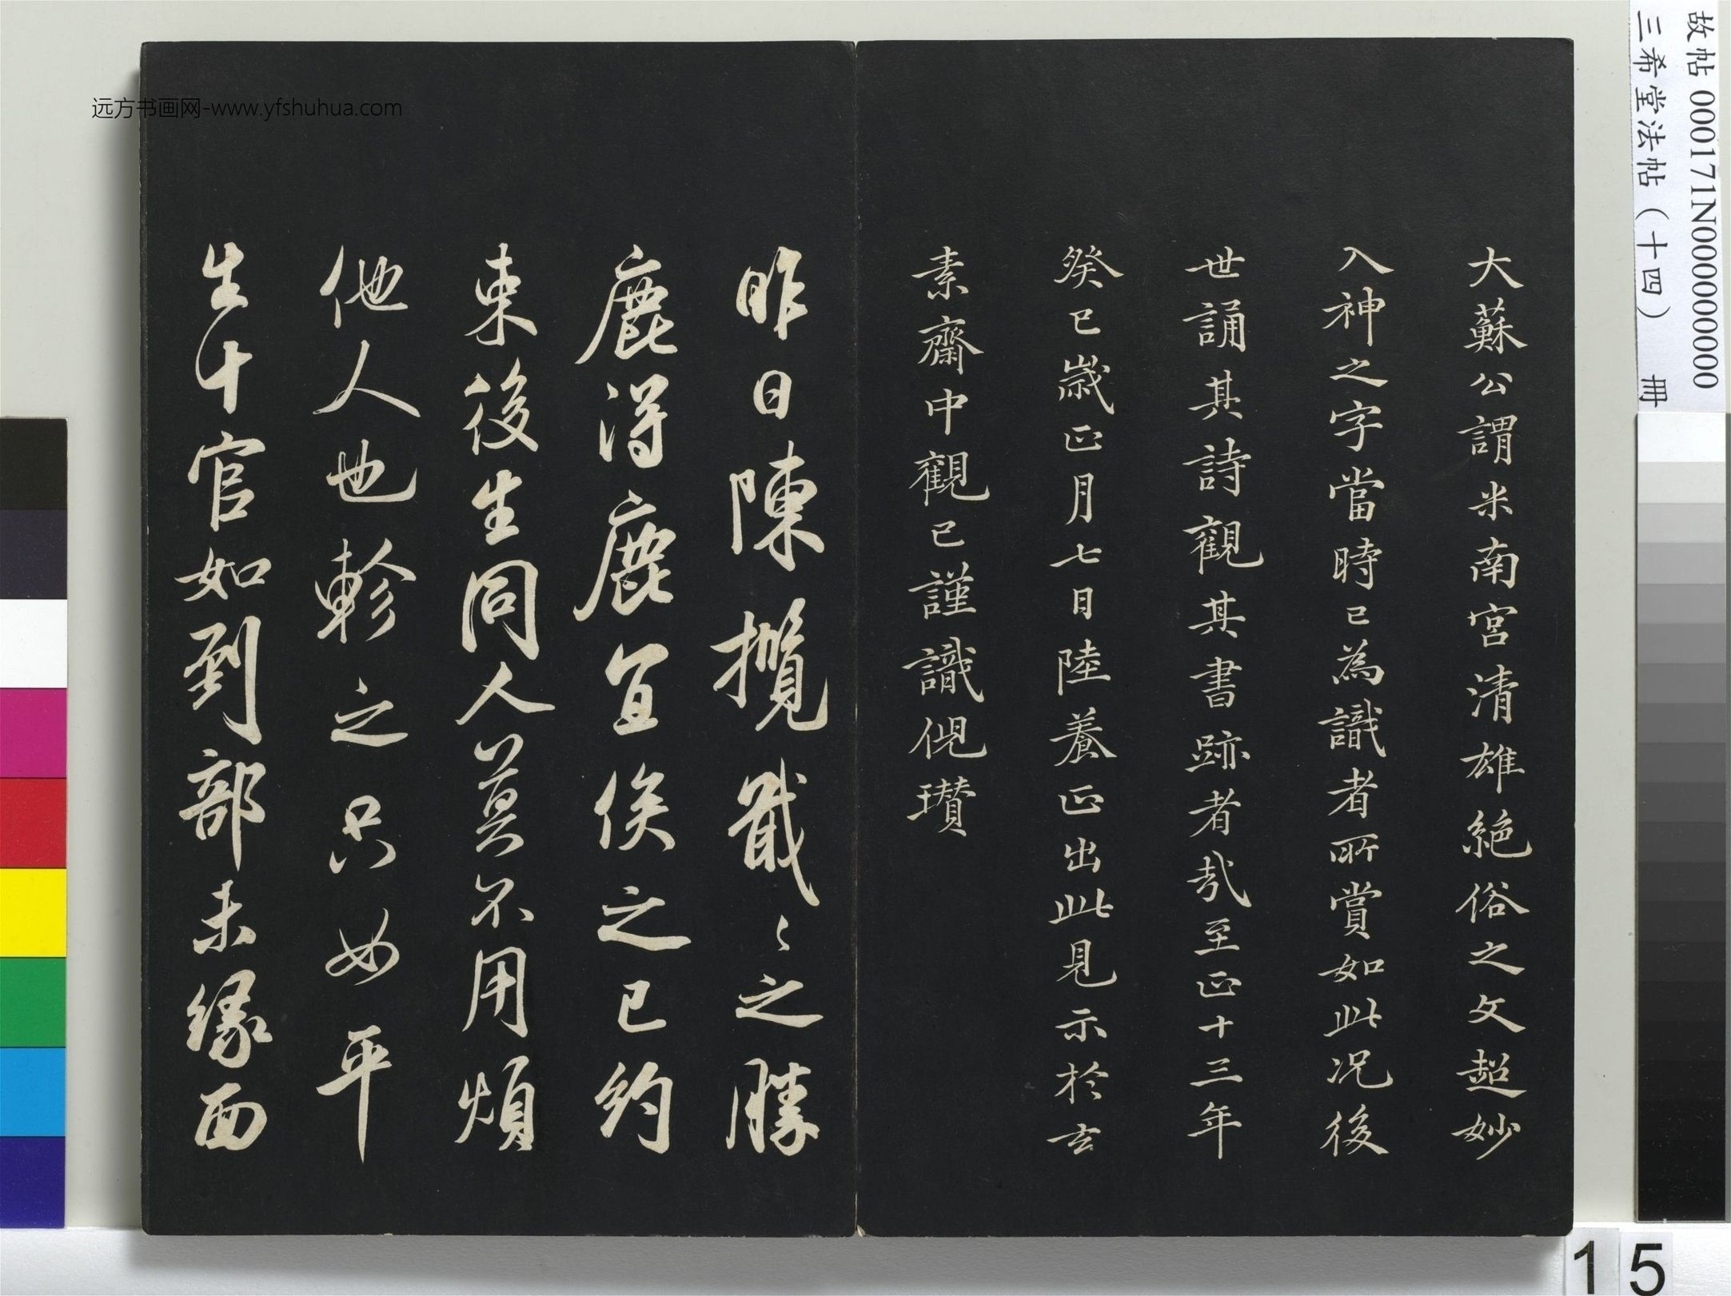 大蘇公謂米南宮清雄絕俗之文超妙
入神之字當時已為識者所賞如此况後
世誦其詩觀其書跡者哉至正十三年
癸巳歲正月七日陸養正出此見示於玄
素齋中觀已謹識倪瓚
昨日陳攬戢戢之勝
鹿得鹿宜俟之已約
束後生同人莫不用煩
他人也軫之只如平
生十官如到部未緣面
故帖 000171N000000000
三希堂法帖（十四） 冊
远方书画网-www.yfshuhua.com
15